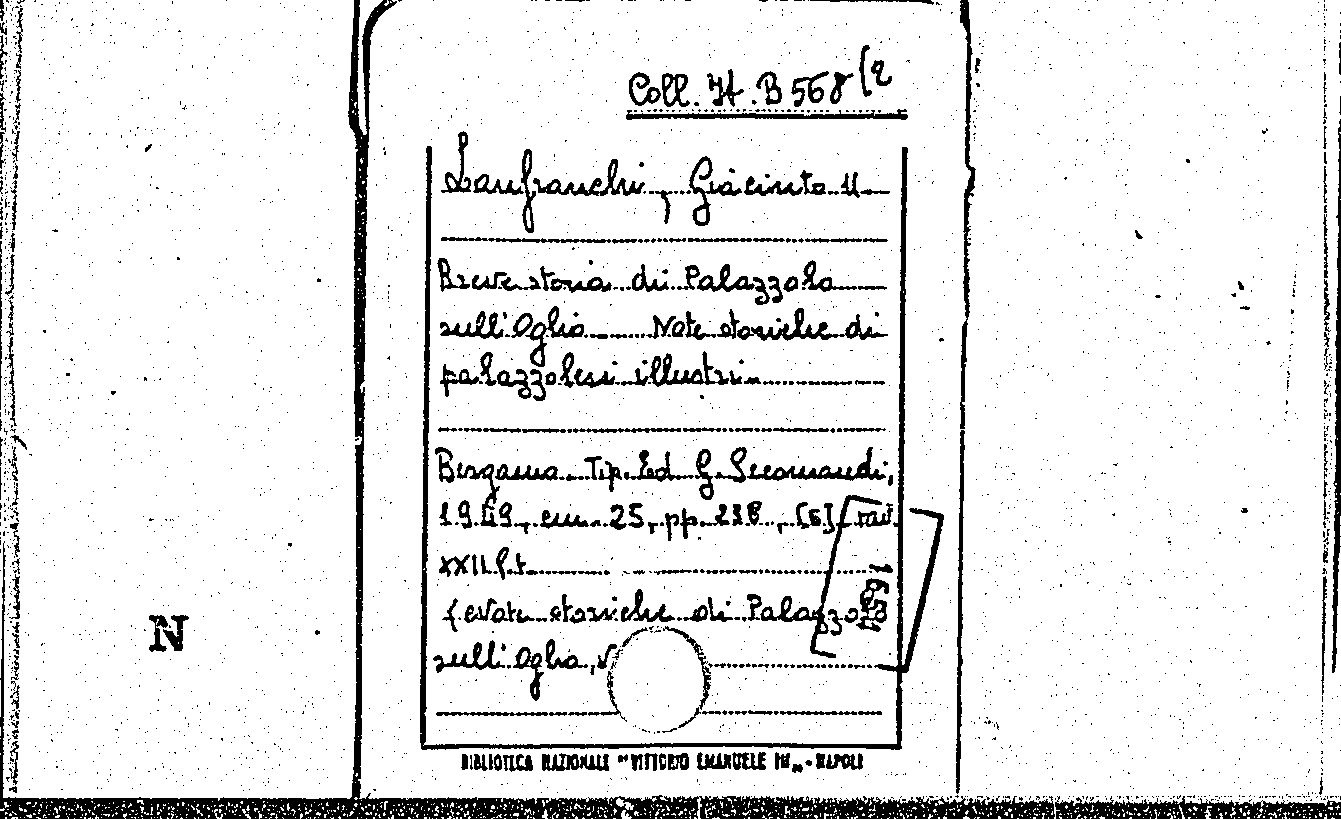 Coll. It. B 568 (2
Lanfranchi, Giacinto U.
Breve storia di Palazzolo
sull'Oglio Note storiche di
palazzolesi illustri.
Bergamo. Tip. Ed G. Secomandi,
1949, cm. 25, pp. 238, [6] tav.
XXII f.t.
(Note storiche di Palazzolo
sull'Oglio,
N
BIBLIOTECA NAZIONALE "VITTORIO EMANUELE III" - NAPOLI